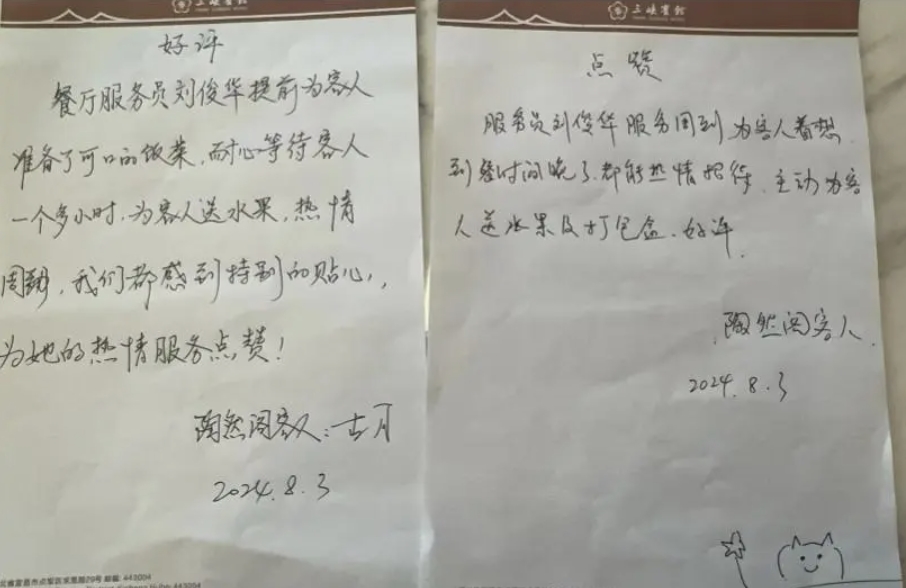 三峡宾馆
好评
餐厅服务员刘俊华提前为客人
准备了可口的饭菜,耐心等待客人
一个多小时,为客人送水果,热情
周到,我们都感到特别的贴心,
为她的热情服务点赞!
陶然阁客人:古月
2024.8.3
443004
三峡宾馆
点赞
服务员刘俊华服务周到,为客人着想
到餐时间晚了,都能热情招待,主动为客
人送水果及打包盒、好评.
陶然阁客人.
2024.8.3